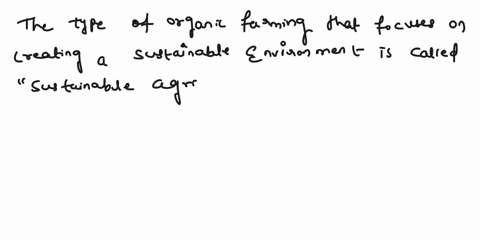 The type of organic farming that focuses on
creating a sustainable Environment is called
"sustainable agri